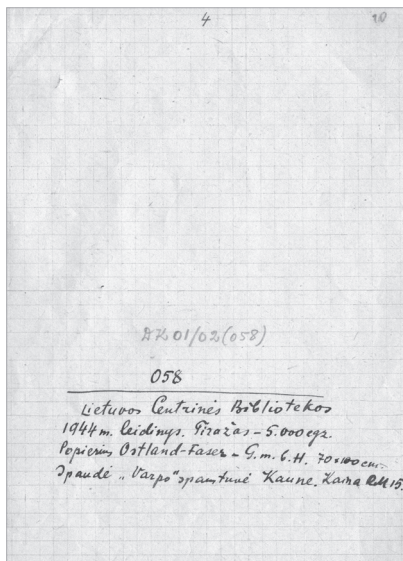 4 10
DK 01/02(058)
058
Lietuvos Centrinės Bibliotekos
1944 m. leidinys. Tiražas - 5.000 egz.
Popierius Ostland-Faser - G.m.b.H. 70×100 cm.
Spaudė „Varpo" spaustuvė Kaune. Kaina RM 15.